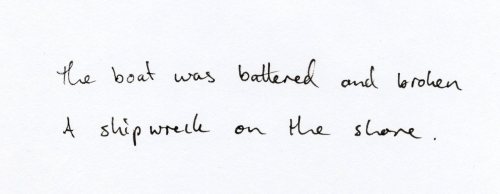 the boat was battered and broken
A shipwreck on the shore.